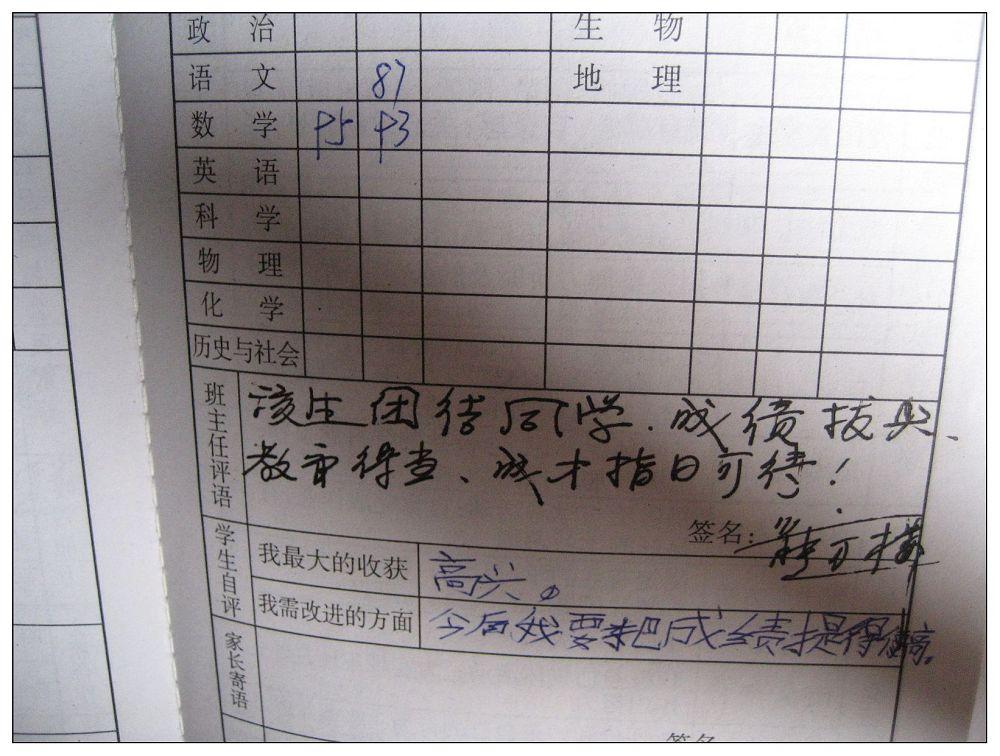 政治 生物
语文 87 地理
数学 95 93
英语
科学
物理
化学
历史与社会
班主任评语 该生团结同学、成绩拔尖、
教育得当、成才指日可待！
签名：
学生自评 我最大的收获 高兴。
我需改进的方面 今后我要把成绩提得很高。
家长寄语
签名